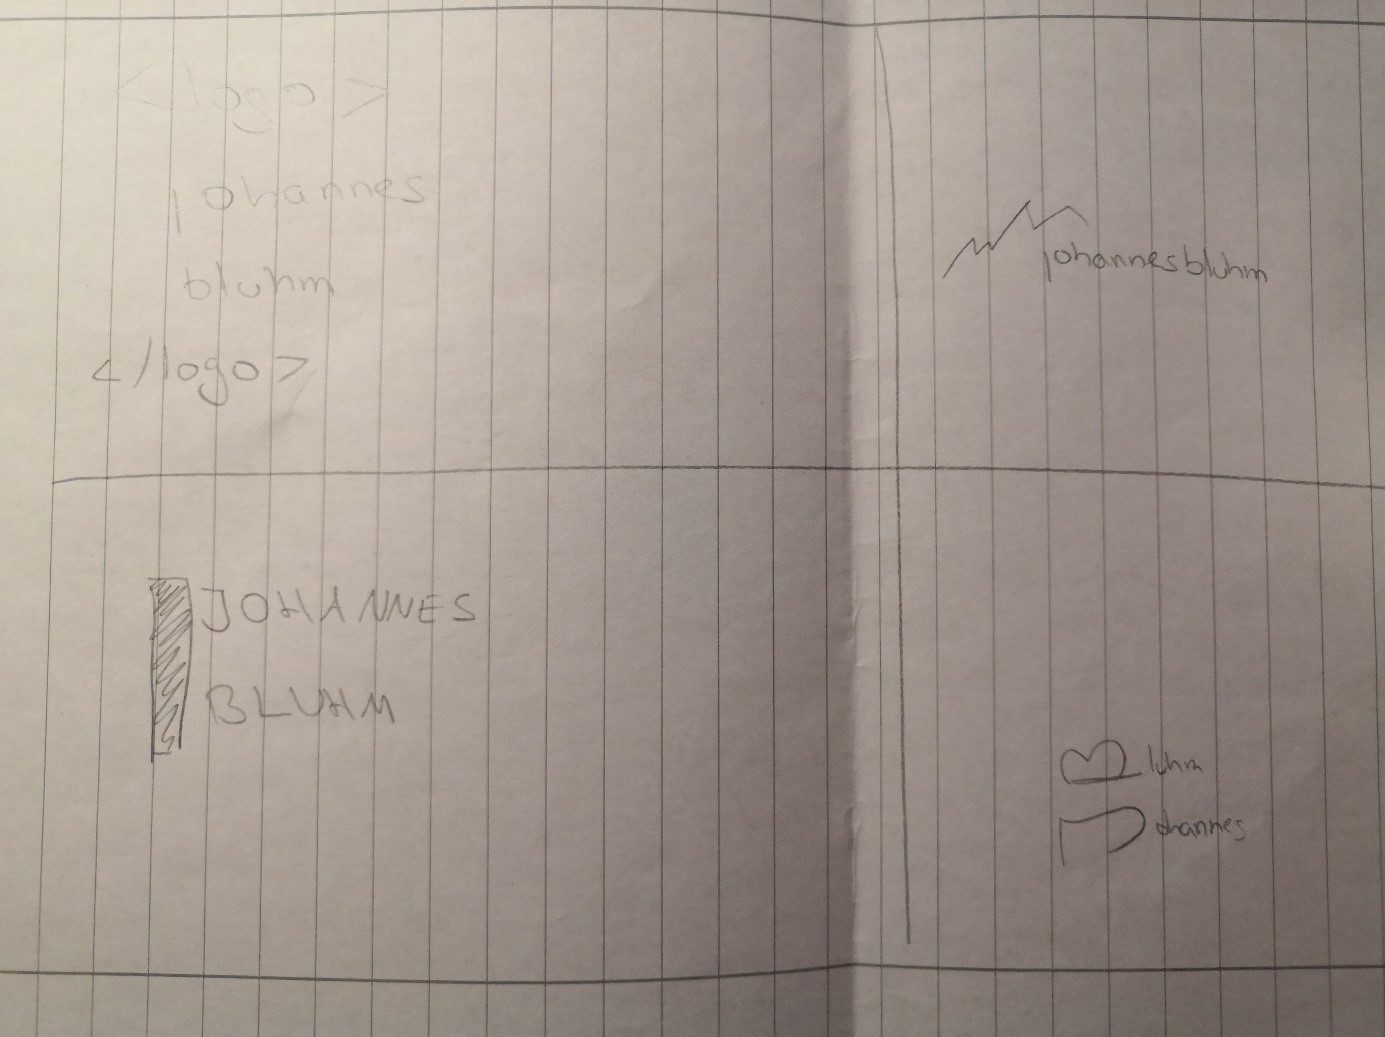 <logo>
johannes
bluhm
</logo>
johannesbluhm
JOHANNES
BLUHM
Bluhm
Johannes